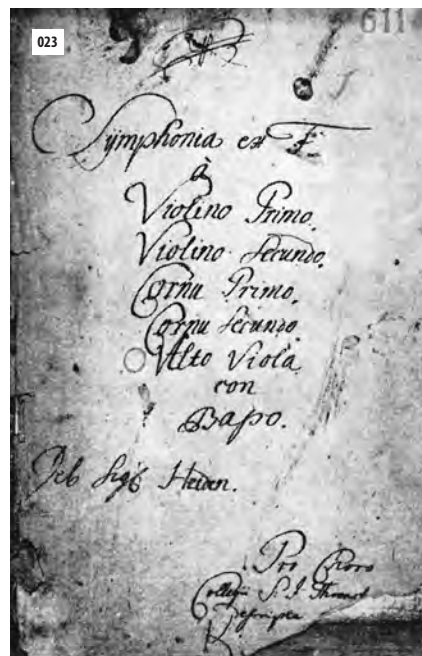 023
611
Sÿmphonia ex F
à
Violino Primo.
Violino Secundo.
Cornu Primo.
Cornu Secundo.
Alto Viola
con
Basso.
Del Sigl Heiden.
Pro Choro
Collegii S. J.
descripta